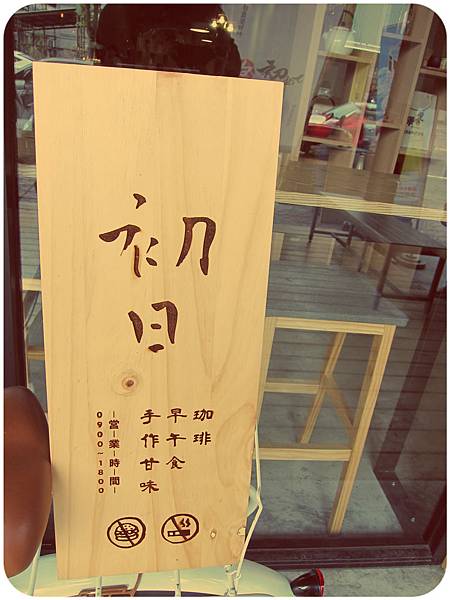 初日
珈琲
早午食
手作甘味
－營－業－時－間－
0900~1800
初